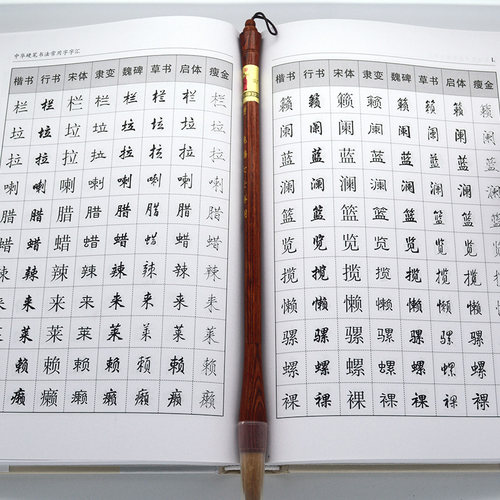 中华硬笔书法常用字字汇
楷书 行书 宋体 隶变 魏碑 草书 启体 瘦金
栏 栏 栏 栏 栏 栏 栏 栏
垃 垃 垃 垃 垃 垃 垃 垃
拉 拉 拉 拉 拉 拉 拉 拉
喇 喇 喇 喇 喇 喇 喇 喇
腊 腊 腊 腊 腊 腊 腊 腊
蜡 蜡 蜡 蜡 蜡 蜡 蜡 蜡
辣 辣 辣 辣 辣 辣 辣 辣
来 来 来 来 来 来 来 来
莱 莱 莱 莱 莱 莱 莱 莱
赖 赖 赖 赖 赖 赖 赖 赖
癞 癞 癞 癞 癞 癞 癞 癞
L
楷书 行书 宋体 隶变 魏碑 草书 启体 瘦金
籁 籁 籁 籁 籁 籁 籁 籁
阑 阑 阑 阑 阑 阑 阑 阑
蓝 蓝 蓝 蓝 蓝 蓝 蓝 蓝
澜 澜 澜 澜 澜 澜 澜 澜
篮 篮 篮 篮 篮 篮 篮 篮
览 览 览 览 览 览 览 览
揽 揽 揽 揽 揽 揽 揽 揽
懒 懒 懒 懒 懒 懒 懒 懒
骡 骡 骡 骡 骡 骡 骡 骡
螺 螺 螺 螺 螺 螺 螺 螺
裸 裸 裸 裸 裸 裸 裸 裸